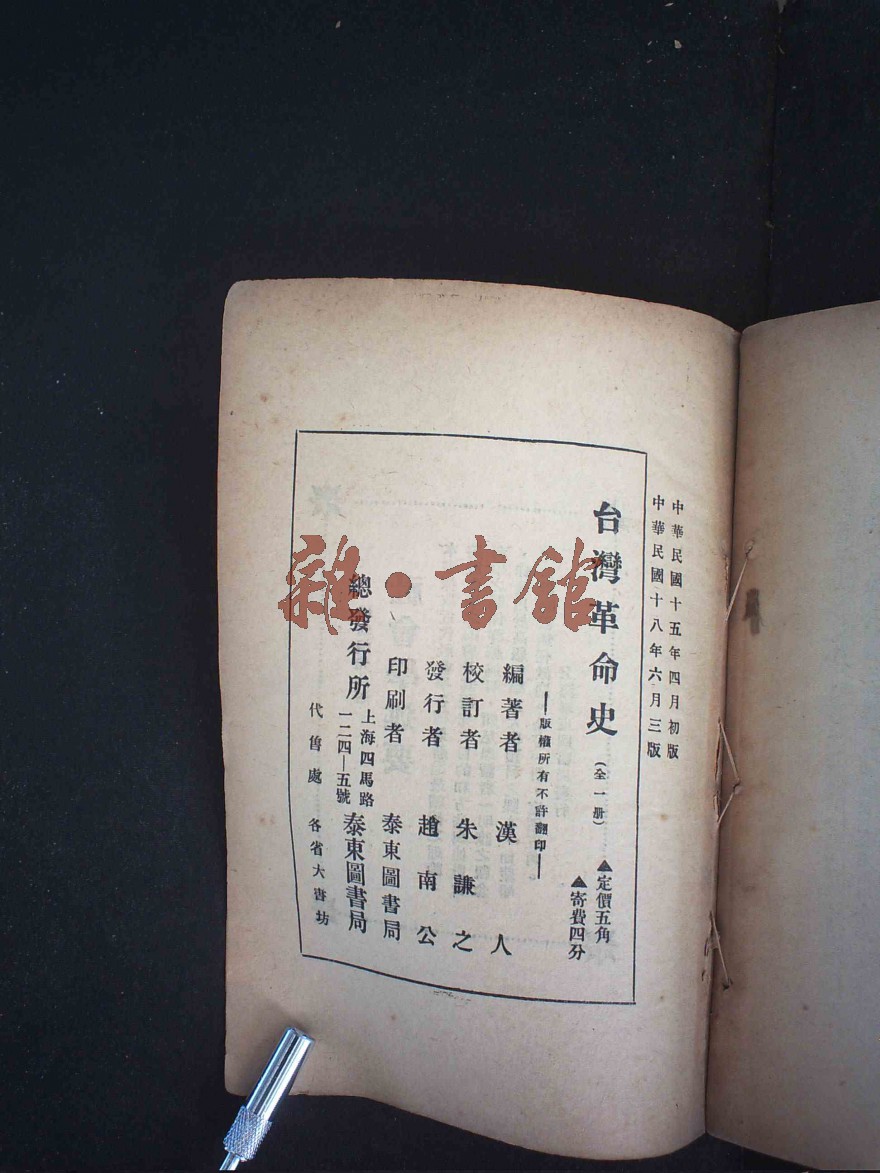 中華民國十五年四月初版
中華民國十八年六月三版
台灣革命史
(全一册)
▲定價五角
▲寄費四分
——版權所有不許翻印——
編著者 漢人
校訂者 朱謙之
發行者 趙南公
印刷者 泰東圖書局
總發行所 上海四馬路 一二四—五號 泰東圖書局
代售處 各省大書坊
雜·書館